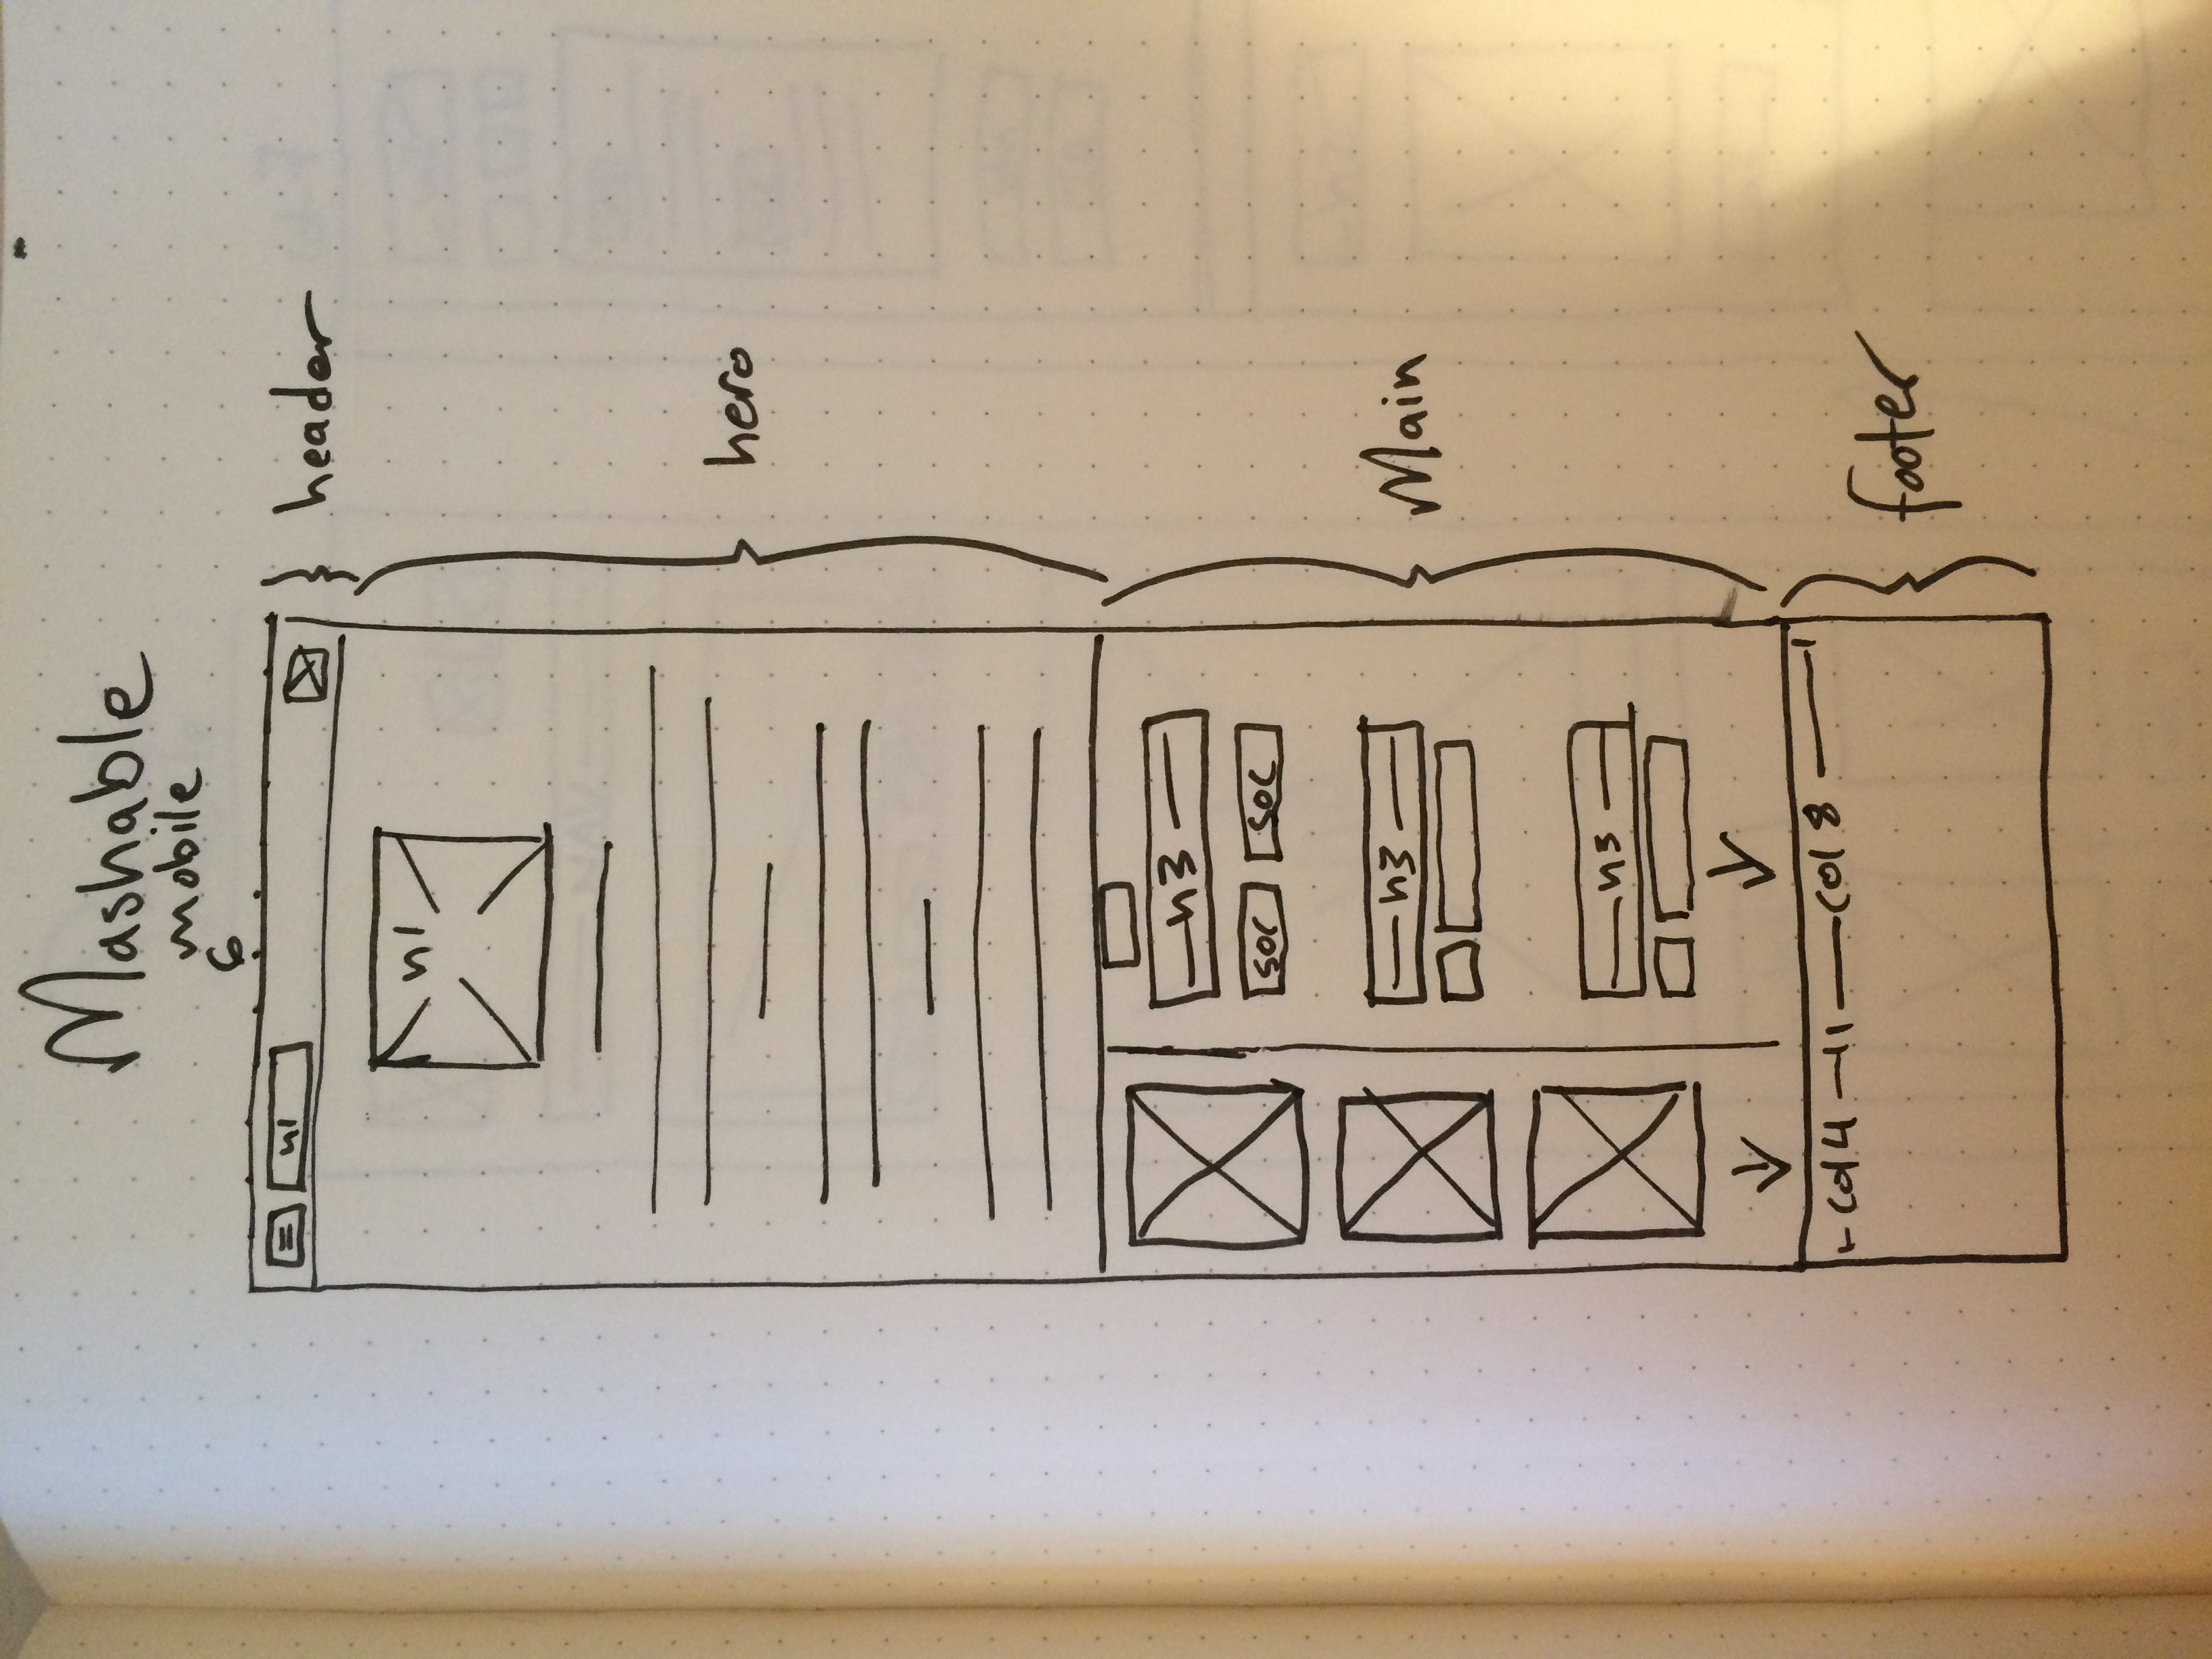 Mashable
mobile
6
h1
header
h1
hero
h3
soc soc
h3
Main
h3
col 4 col 8
footer